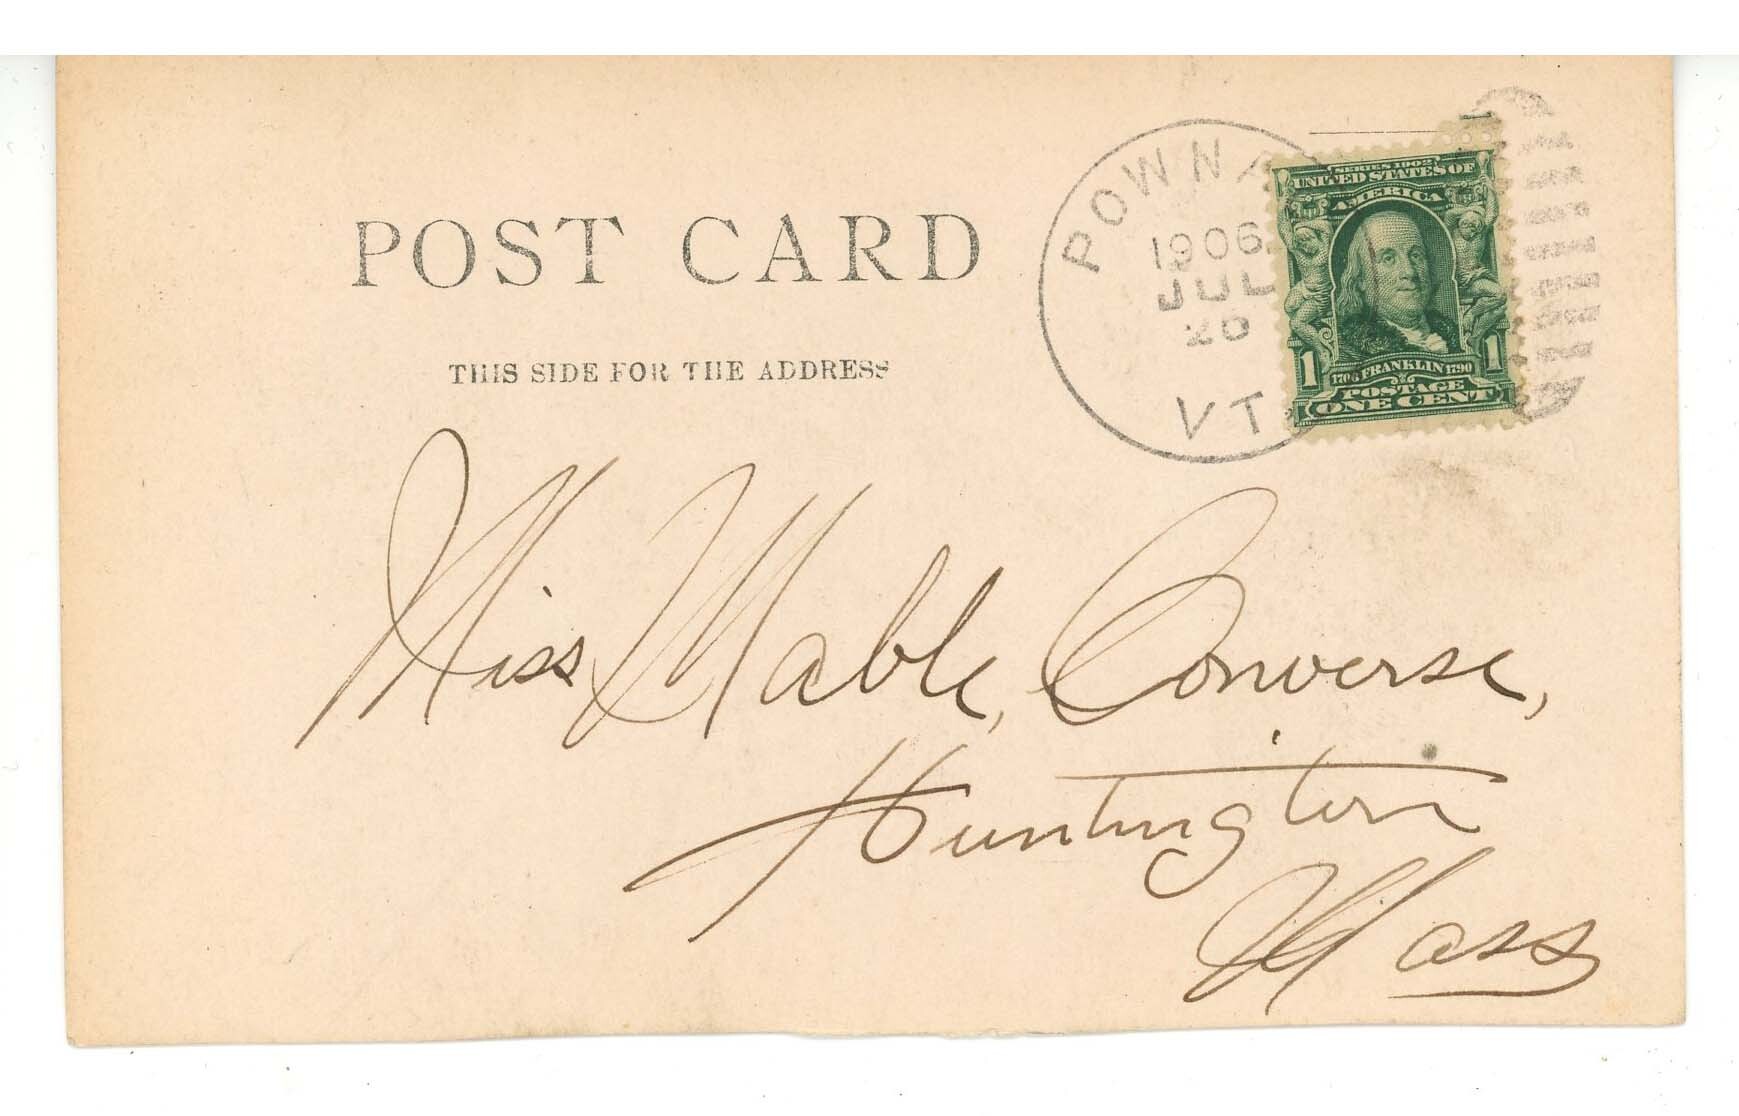 POST CARD
THIS SIDE FOR THE ADDRESS
POWNA
1906
JUL
VT.
SERIES 1902
UNITED STATES OF
AMERICA
1 1
1706 FRANKLIN 1790
POSTAGE
ONE CENT
Miss Mable, Converse,
Huntington
Mass